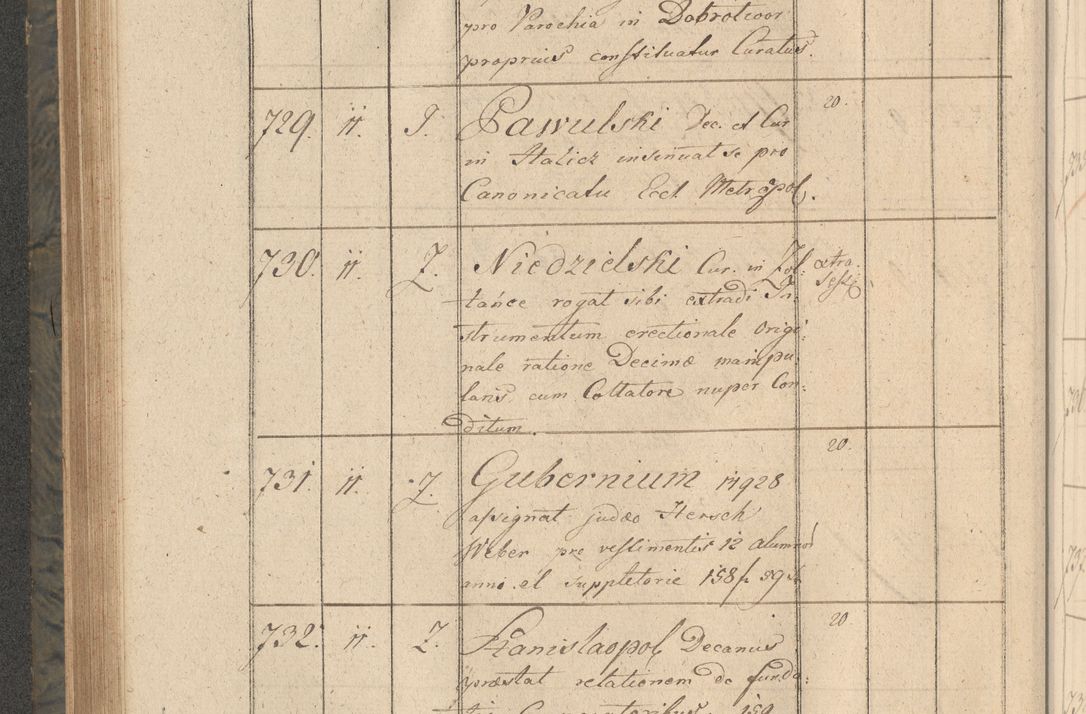 pro Parochia in Dobrotwor
proprius constituatur Curatus.
729. 11. J. Pawulski Dec. et Cur 20.
in Halicz insinuat se pro
Canonicatu Eccl. Metropol.
730. 11. Z. Niedzielski Cur. in Zol: extra
tańce rogat sibi extradi In sess:
strumentum erectionale Origi:
nale ratione Decimæ manipu:
laris cum Collatore nuper Con:
ditum.
731. 11. Z. Gubernium 11928 20.
assignat judæo Hersch
Weber pre vestimentis 12 alumnor
anno el suppletorie 158 f 59 x
732. 11. Z. Stanislaopol Decanus 20
præstat relationem de funda:
159